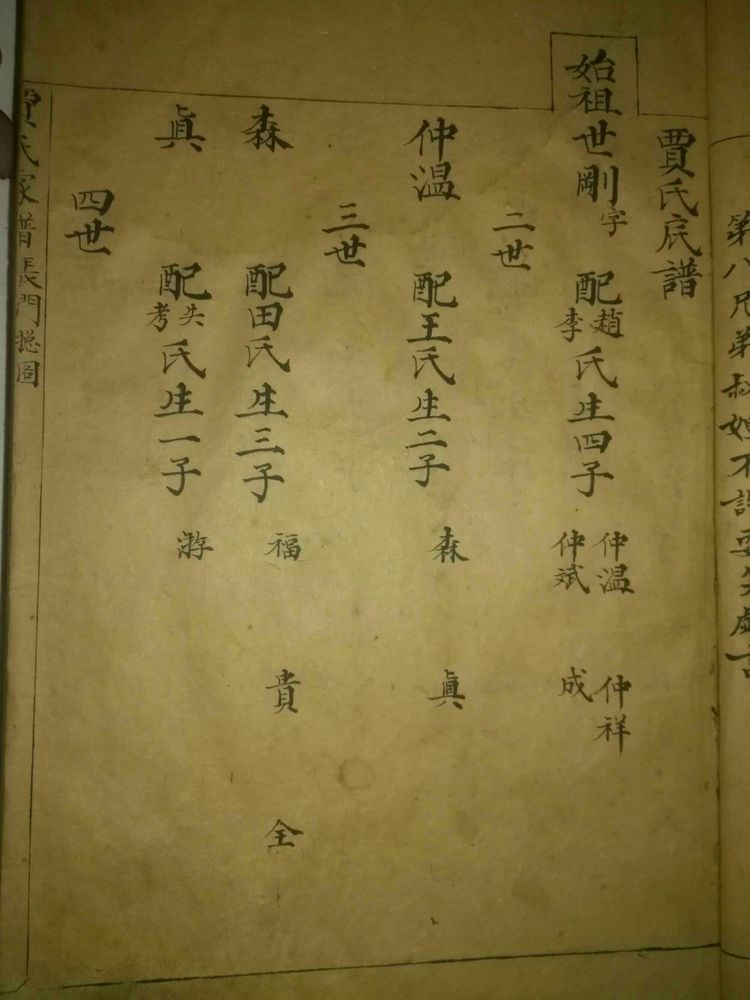 第八凡弟叔嫂不許
賈氏宗譜
始祖世剛字 配趙李氏生四子 仲温 仲祥 仲斌 成
二世
仲温 配王氏生二子 森 真
三世
森 配田氏生三子 福 貴 全
真 配失考氏生一子 游
四世
賈氏家譜長門總圖